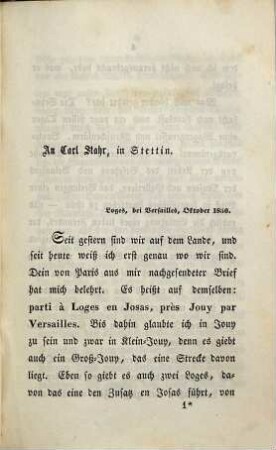 An Carl Stahr, in Stettin.
Loges, bei Versailles, Oktober 1850.
Seit gestern sind wir auf dem Lande, und
seit heute weiß ich erst genau wo wir sind.
Dein von Paris aus mir nachgesendeter Brief
hat mich belehrt. Es heißt auf demselben:
parti à Loges en Josas, près Jouy par
Versailles. Bis dahin glaubte ich in Jouy
zu sein und zwar in Klein-Jouy, denn es giebt
auch ein Groß-Jouy, das eine Strecke davon
liegt. Eben so giebt es auch zwei Loges, da-
von das eine den Zusatz en Josas führt, von
1*